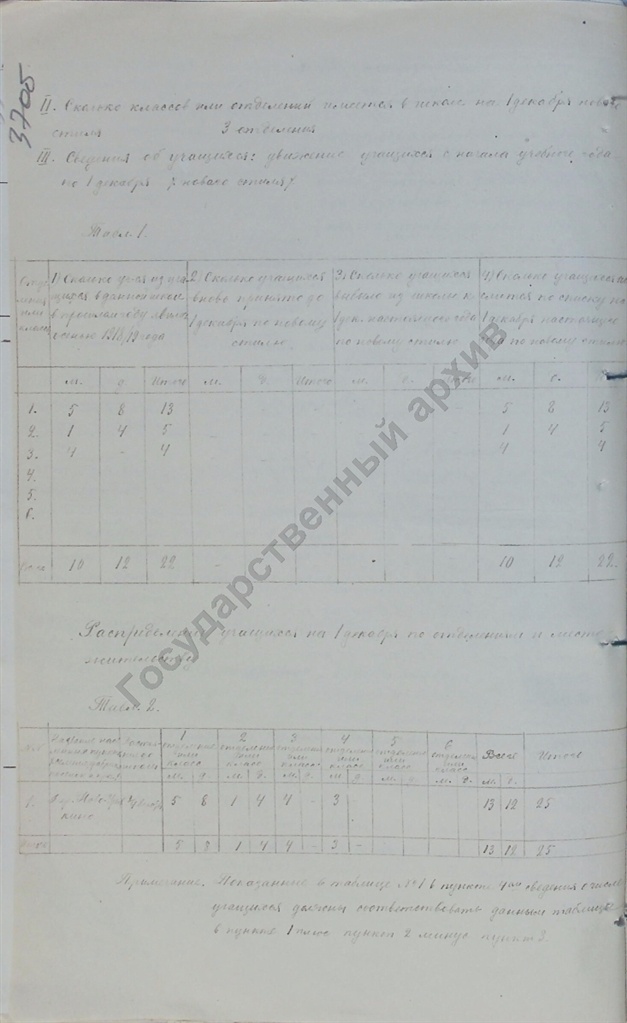 3705
II. Сколько классов или отделений имеется в школе на 1 декабря нового
стиля 3 отделения
III. Сведения об учащихся: движение учащихся с начала учебного года
по 1 декабря /нового стиля/
Табл. 1.
1) Сколько
2) Сколько учащихся
3) Сколько учащихся
4) Сколько учащихся
или
в прошлом году
вновь принято до
выбыло из школы к
числится по списку на
класс
осенью 1918/19 года
1 декабря по новому
1 дек. настоящего года
1 декабря настоящего
стилю
по новому стилю
по новому стилю
м. д. Итого м. д. Итого м. д. м. д.
1. 5 8 13 5 8 13
2. 1 4 5 1 4 5
3. 4 - 4 4 4
4.
5.
6.
10 12 22 - - 10 12 22
Распределение учащихся на 1 декабря по отделениям и месту
жительству
Табл. 2.
1 2 3 4 5 6 Всего Итого
отделение или класс отделение или класс отделение или класс отделение или класс отделение или класс отделение или класс
м. д. м. д. м. д. м. д. м. д. м. д. м. д.
1. 5 8 1 4 4 - 3 - 13 12 25
кино
5 8 1 4 4 - 3 - 13 12 25
Примечание. Показанные в таблице №1 в пункте 4ом сведения о числе
учащихся должны соответствовать данным таблицы
в пункте 1 плюс пункт 2 минус пункт 3.
Государственный архив